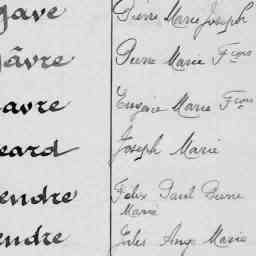 gave Pierre Marie Joseph
gâvre Pierre Marie Fçois
avre Eugène Marie Fçois
eard Joseph Marie
endre Felix Paul Pierre
Marie
endre Jules Ange Marie